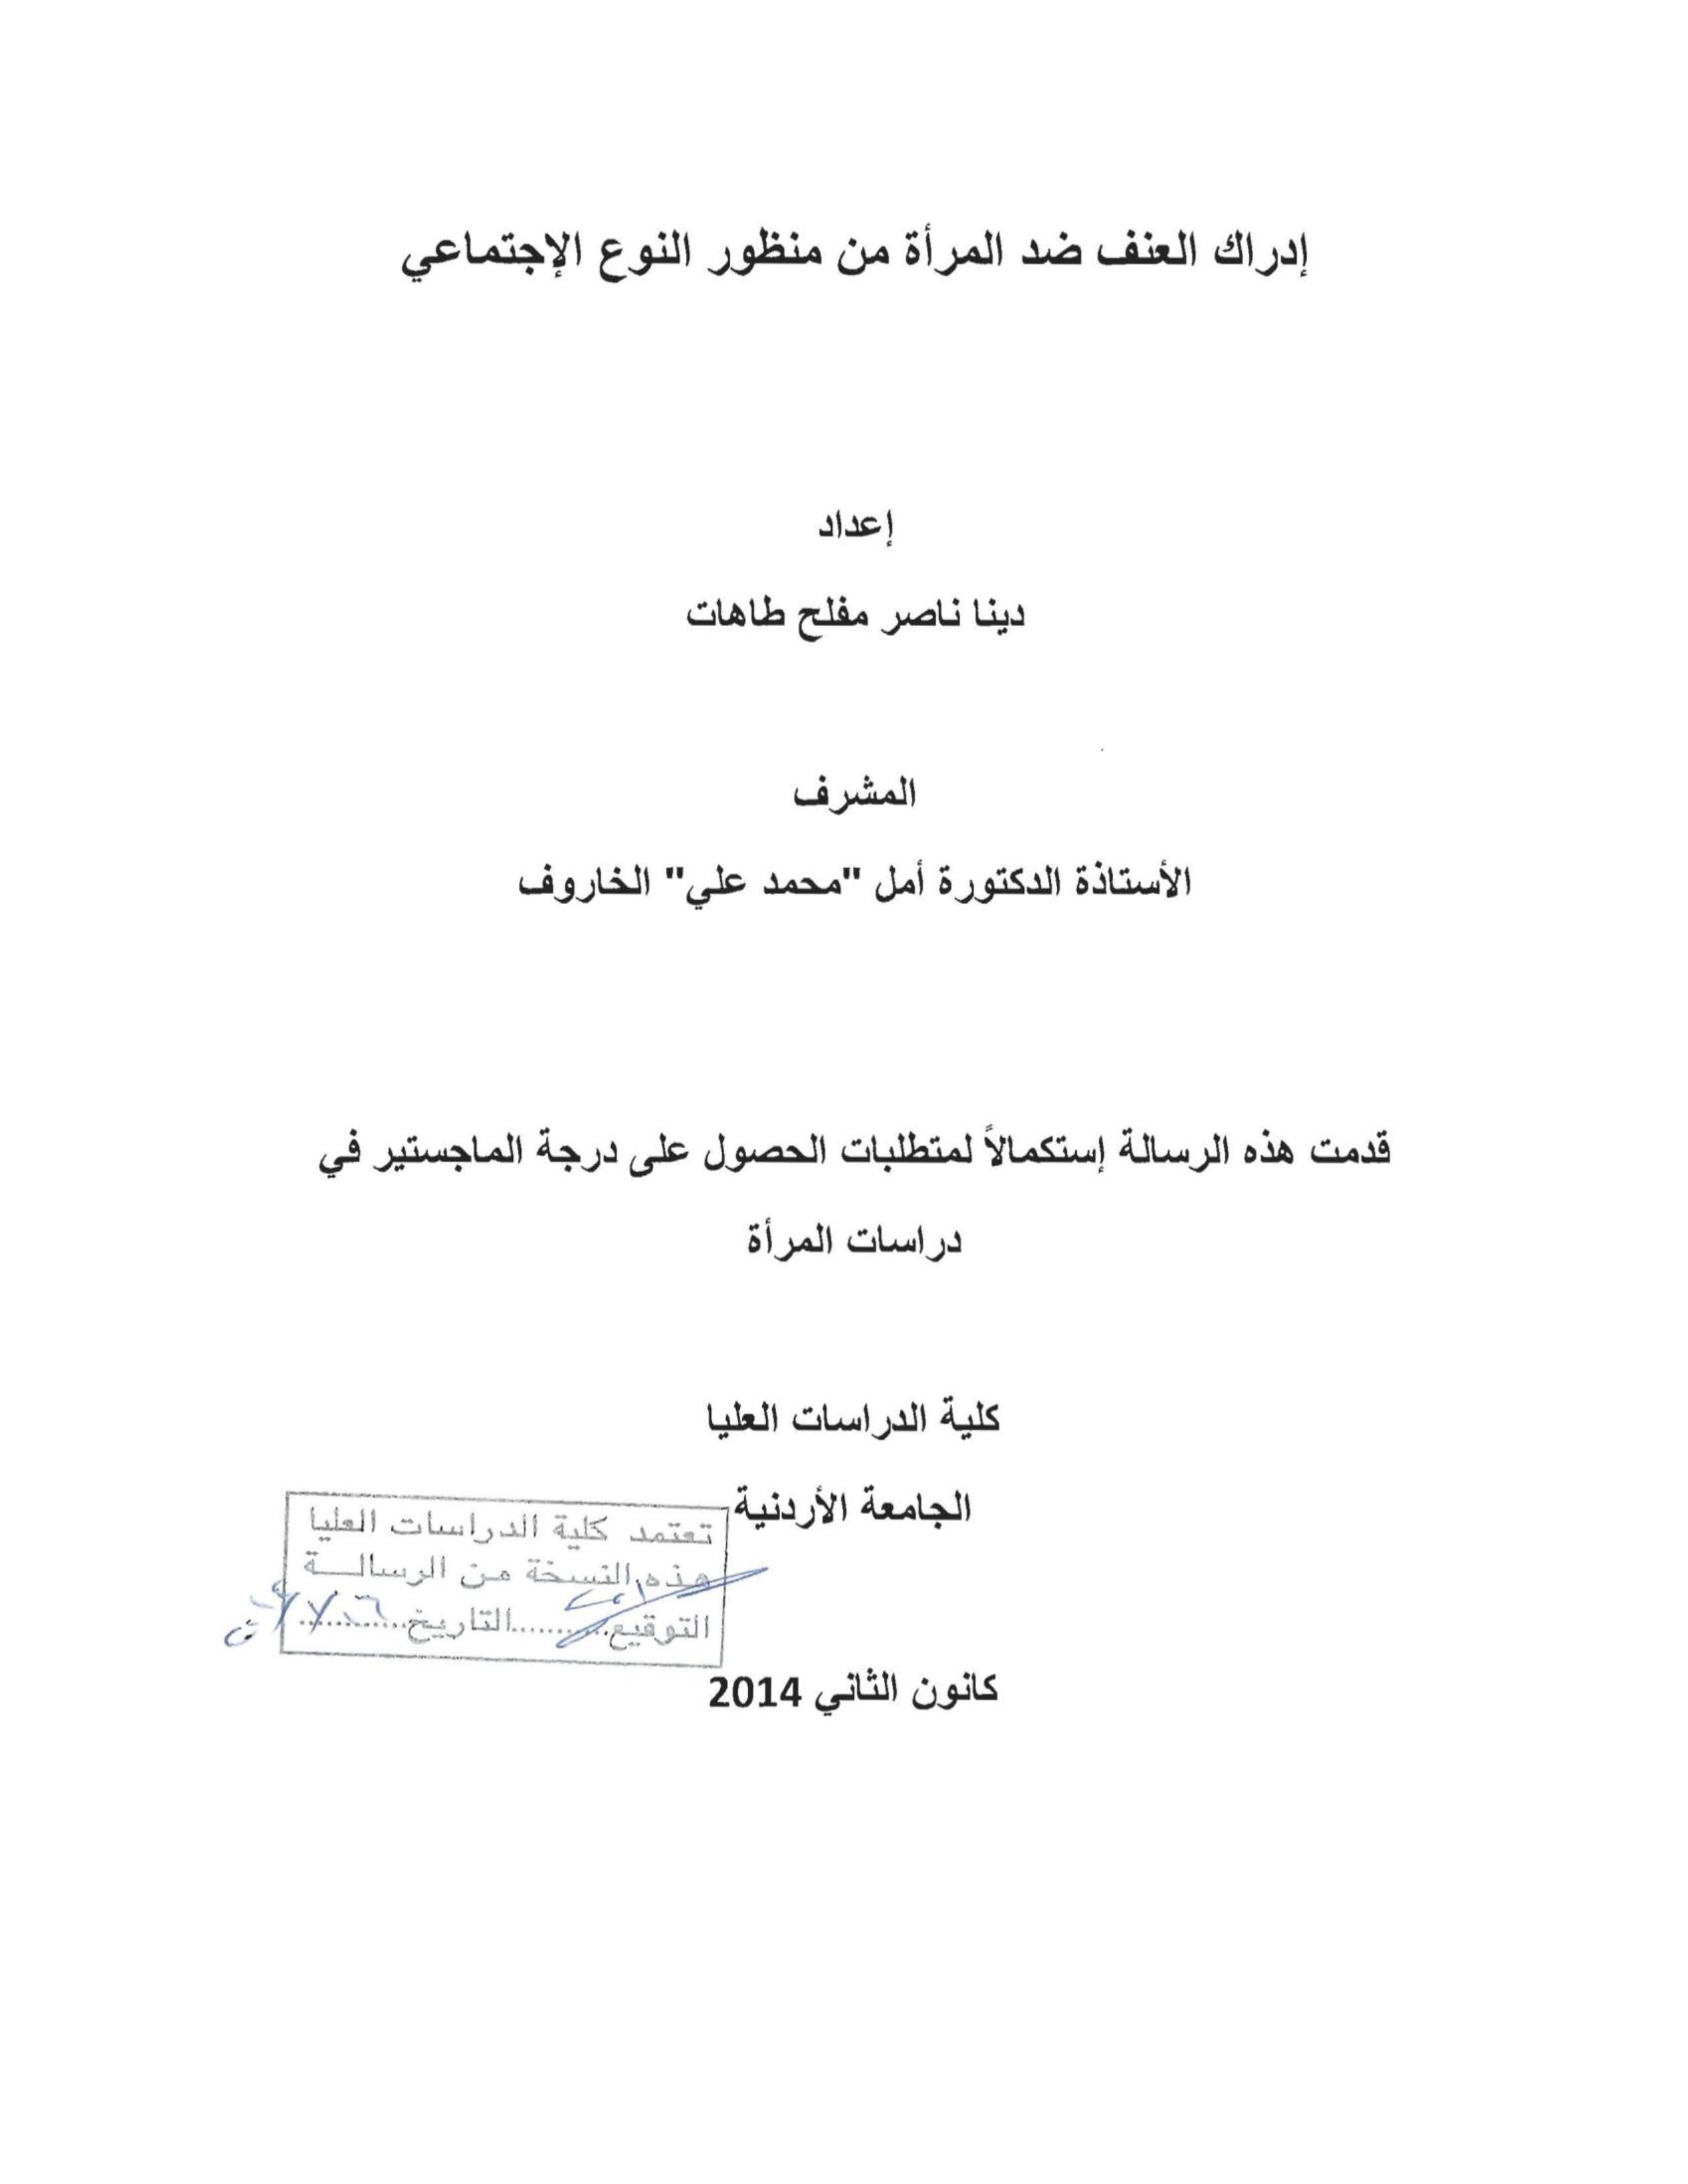 إدراك العنف ضد المرأة من منظور النوع الإجتماعي
إعداد
دينا ناصر مفلح طاهات
المشرف
الأستاذة الدكتورة أمل "محمد علي" الخاروف
قدمت هذه الرسالة إستكمالاً لمتطلبات الحصول على درجة الماجستير في
دراسات المرأة
كلية الدراسات العليا
الجامعة الأردنية
تعتمد كلية الدراسات العليا
هذه النسخة من الرسالــة
التوقيع..........التاريخ............
كانون الثاني 2014